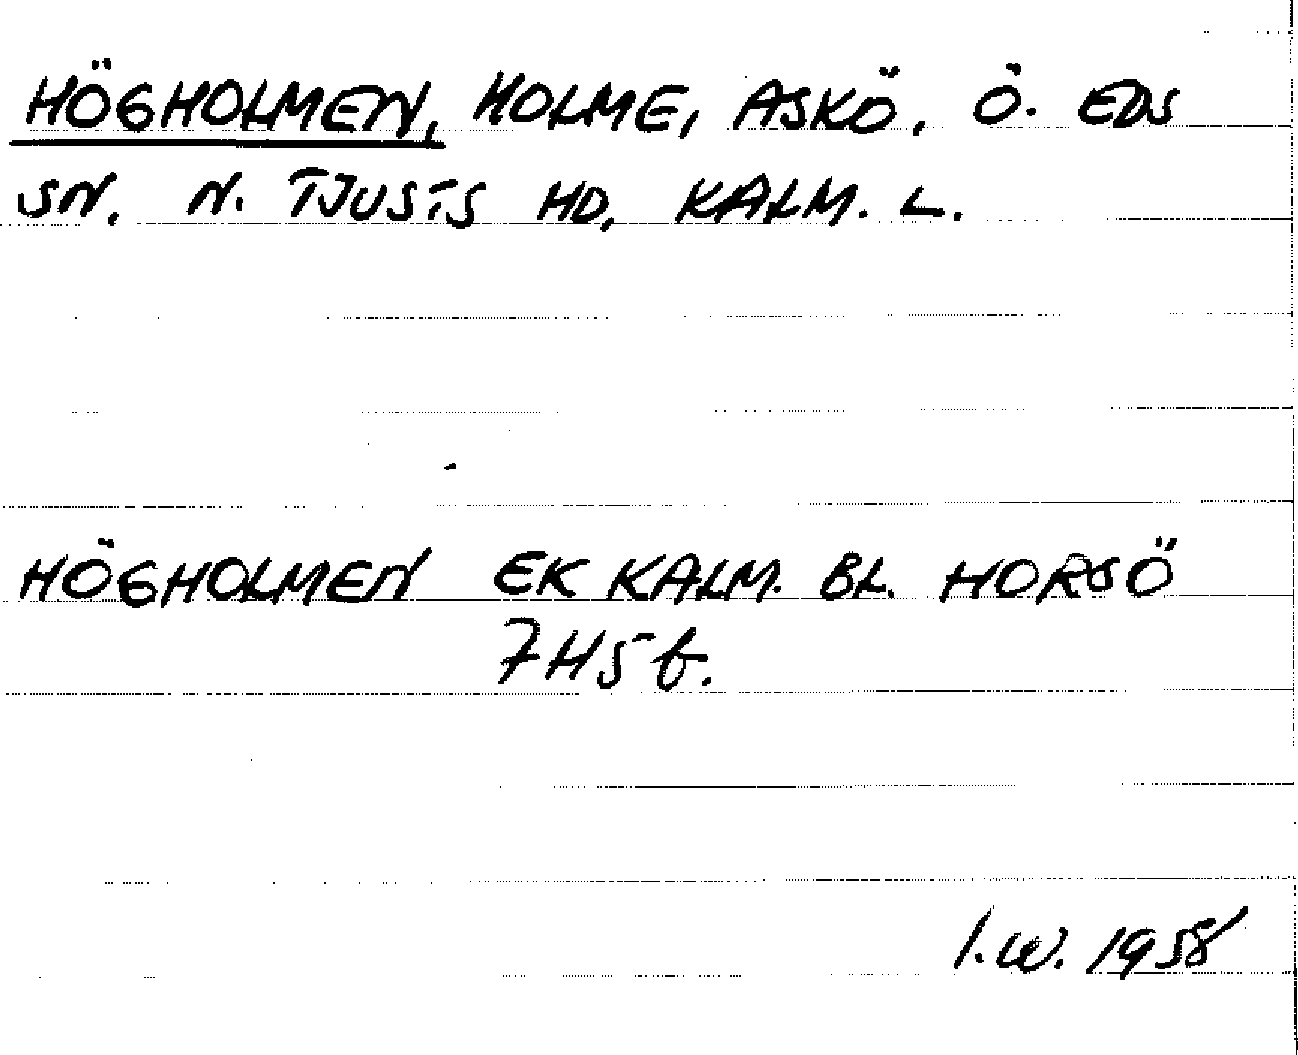 HÖGHOLMEN, HOLME, ASKÖ, Ö. EDS
SN. N. TJUSTS HD, KALM. L.
HÖGHOLMEN EK KALM. BL. HORSÖ
7H5f.
I.W. 1958